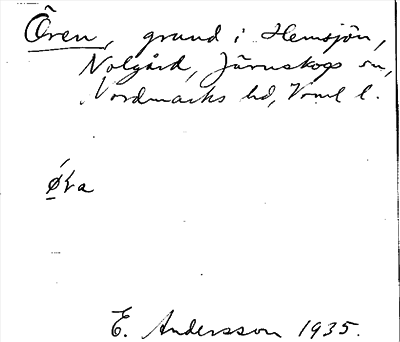 Ören, grund i Hemsjön,
Nolgård, Järnskogs sn,
Nordmarks hd, Vrml l.
E. Andersson 1935.